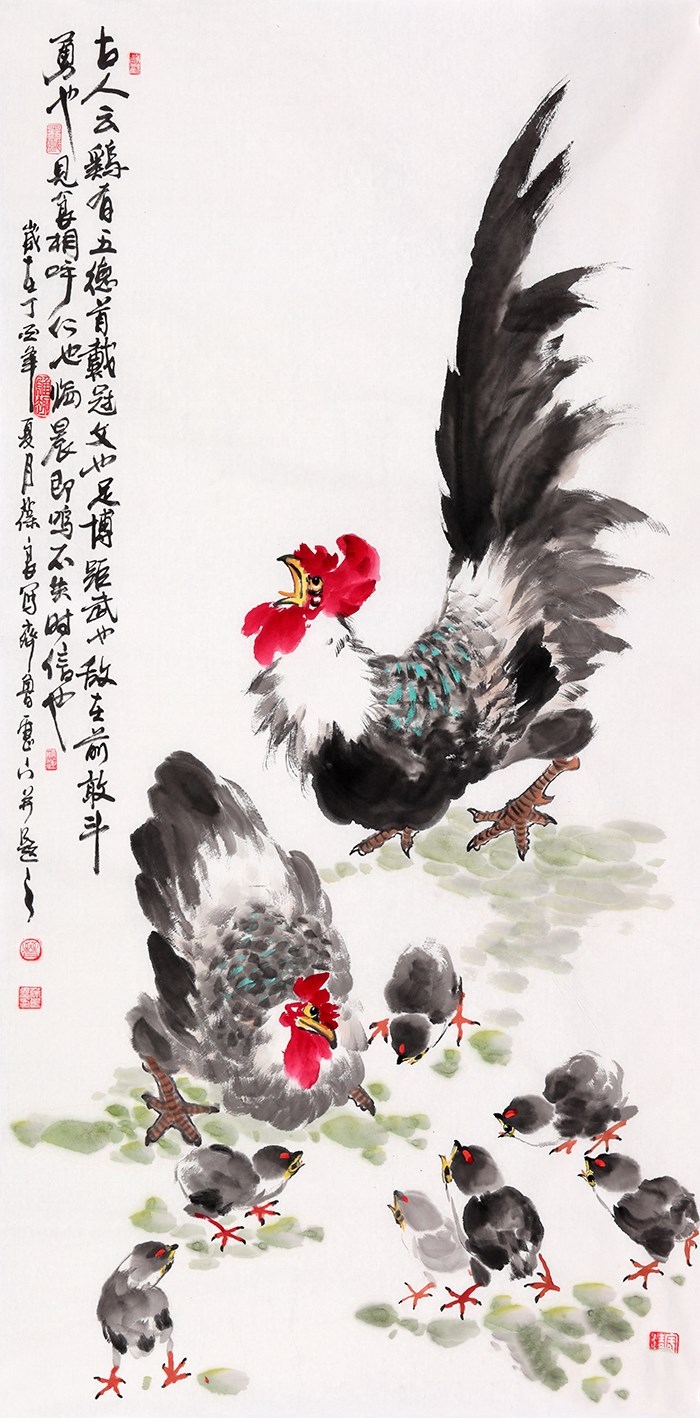 古人云鷄有五德首戴冠文也足博距武也敌在前敢斗
勇也见食相呼仁也临晨即鸣不失时信也
歲在丁酉年夏月寫齊魯并題之